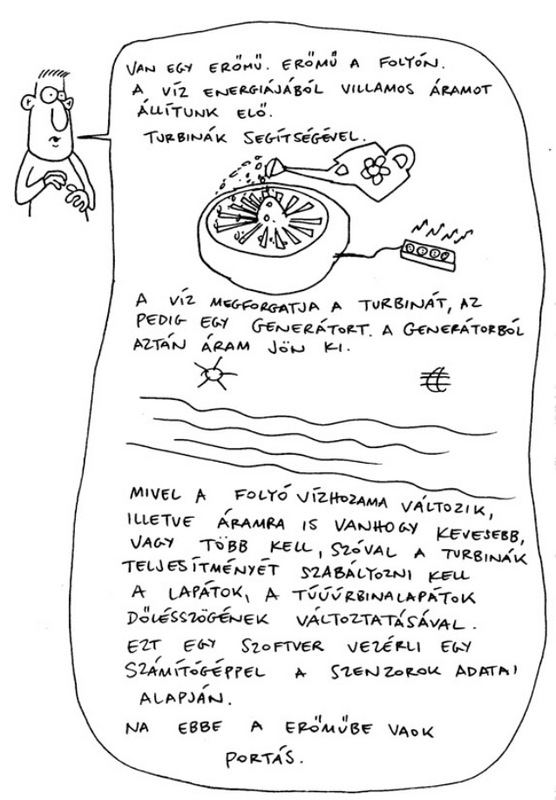 VAN EGY ERŐMŰ. ERŐMŰ A FOLYÓN.
A VÍZ ENERGIÁJÁBÓL VILLAMOS ÁRAMOT
ÁLLÍTUNK ELŐ.
TURBINÁK SEGÍTSÉGÉVEL.
A VÍZ MEGFORGATJA A TURBINÁT, AZ
PEDIG EGY GENERÁTORT. A GENERÁTORBÓL
AZTÁN ÁRAM JÖN KI.
MIVEL A FOLYÓ VÍZHOZAMA VÁLTOZIK,
ILLETVE ÁRAMRA IS VANHOGY KEVESEBB,
VAGY TÖBB KELL, SZÓVAL A TURBINÁK
TELJESÍTMÉNYÉT SZABÁLYOZNI KELL
A LAPÁTOK, A TÚÚÚRBINALAPÁTOK
DŐLÉSSZÖGÉNEK VÁLTOZTATÁSÁVAL.
EZT EGY SZOFTVER VEZÉRLI EGY
SZÁMÍTÓGÉPPEL A SZENZOROK ADATAI
ALAPJÁN.
NA EBBE A ERŐMŰBE VAOK
PORTÁS.